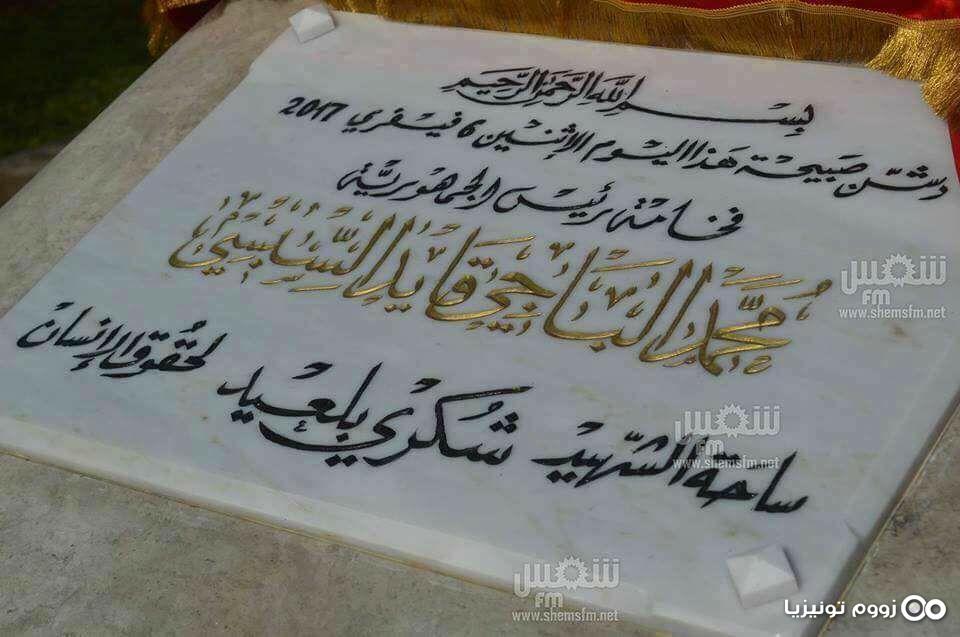 بسم الله الرحمن الرحيم
دشّن صبيحة هذا اليوم الإثنين 6 فيفري 2017
فخامة رئيس الجمهورية
محمّد الباجي قايد السّبسي
ساحة الشّهيد شُكري بلعيد لحُقوق الإنسان
شمس
FM
www.shemsfm.net
شمس
FM
www.shemsfm.net
شمس
FM
www.shemsfm.net
زووم تونيزيا